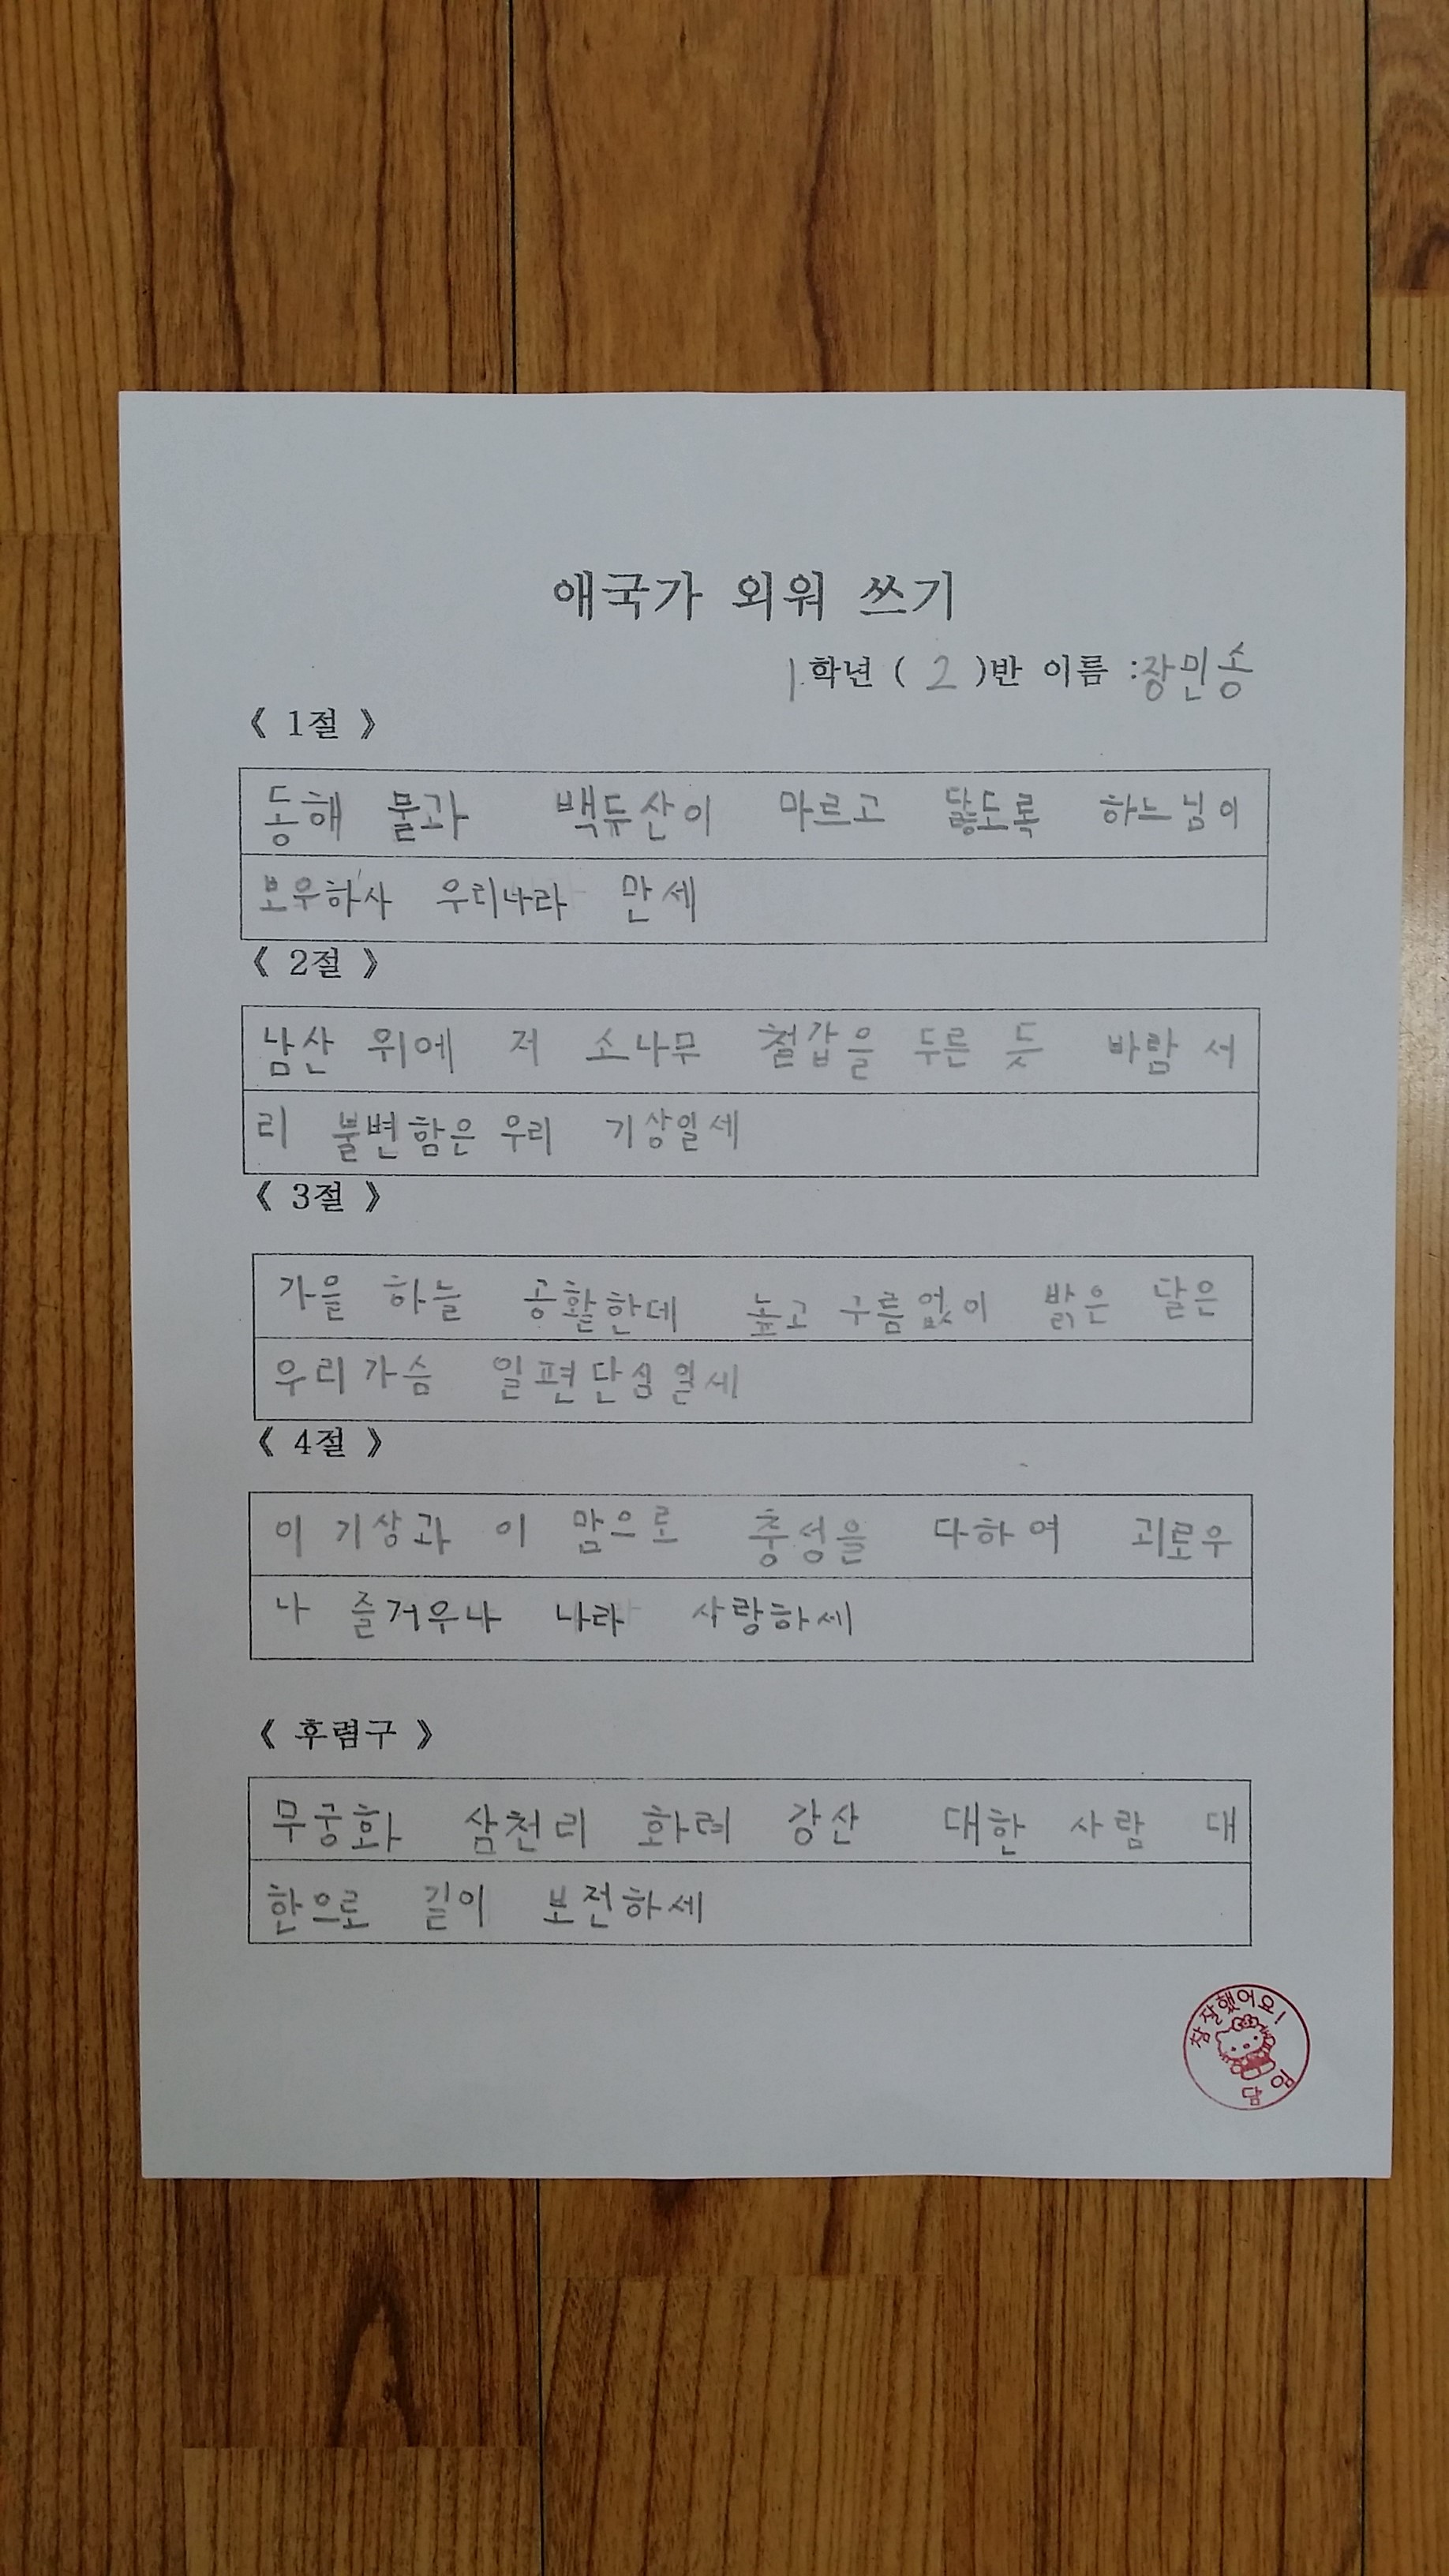 애국가 외워 쓰기
1학년 ( 2 )반 이름 : 장민송
《 1절 》
동해 물과 백두산이 마르고 닳도록 하느님이
보우하사 우리나라 만세
《 2절 》
남산 위에 저 소나무 철갑을 두른 듯 바람 서
리 불변함은 우리 기상일세
《 3절 》
가을 하늘 공활한데 높고 구름없이 밝은 달은
우리가슴 일편단심일세
《 4절 》
이 기상과 이 맘으로 충성을 다하여 괴로우
나 즐거우나 나라 사랑하세
《 후렴구 》
무궁화 삼천리 화려 강산 대한 사람 대
한으로 길이 보전하세
참 잘했어요!